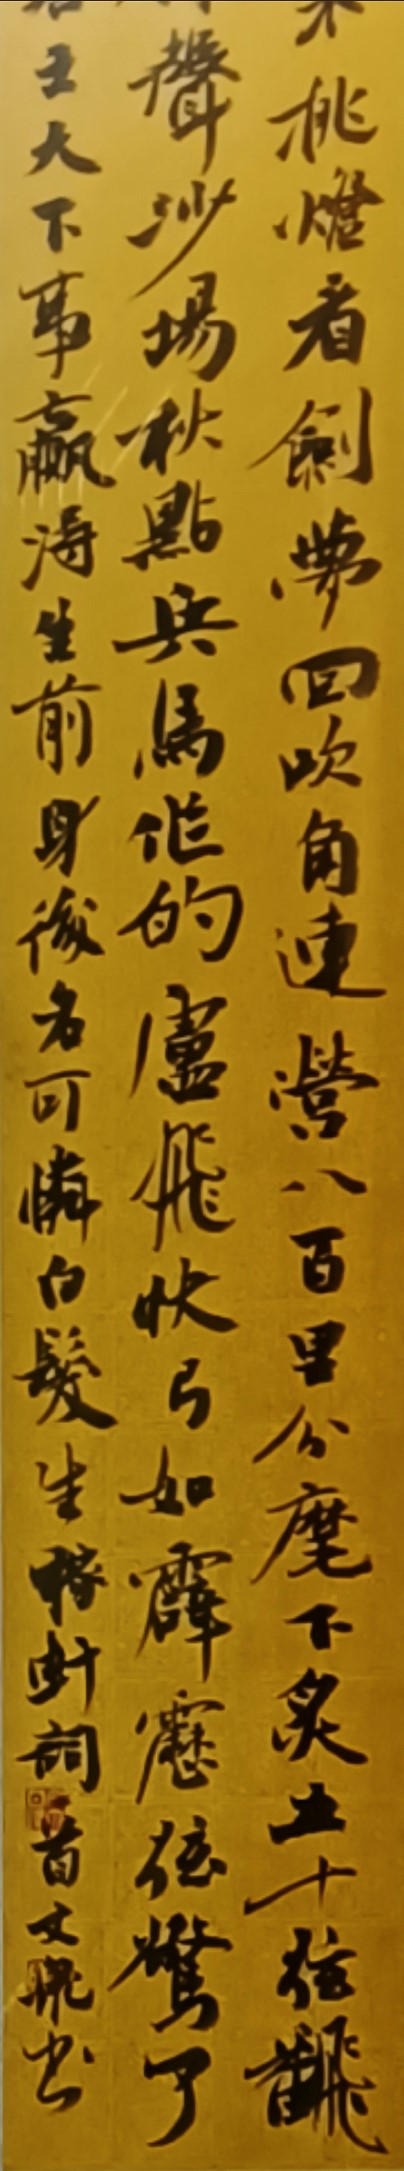 挑燈看劍夢回吹角連營八百里分麾下炙五十弦翻
聲沙場秋點兵馬作的盧飛快弓如霹靂弦驚了
王天下事贏得生前身後名可憐白髮生稼軒詞首文書